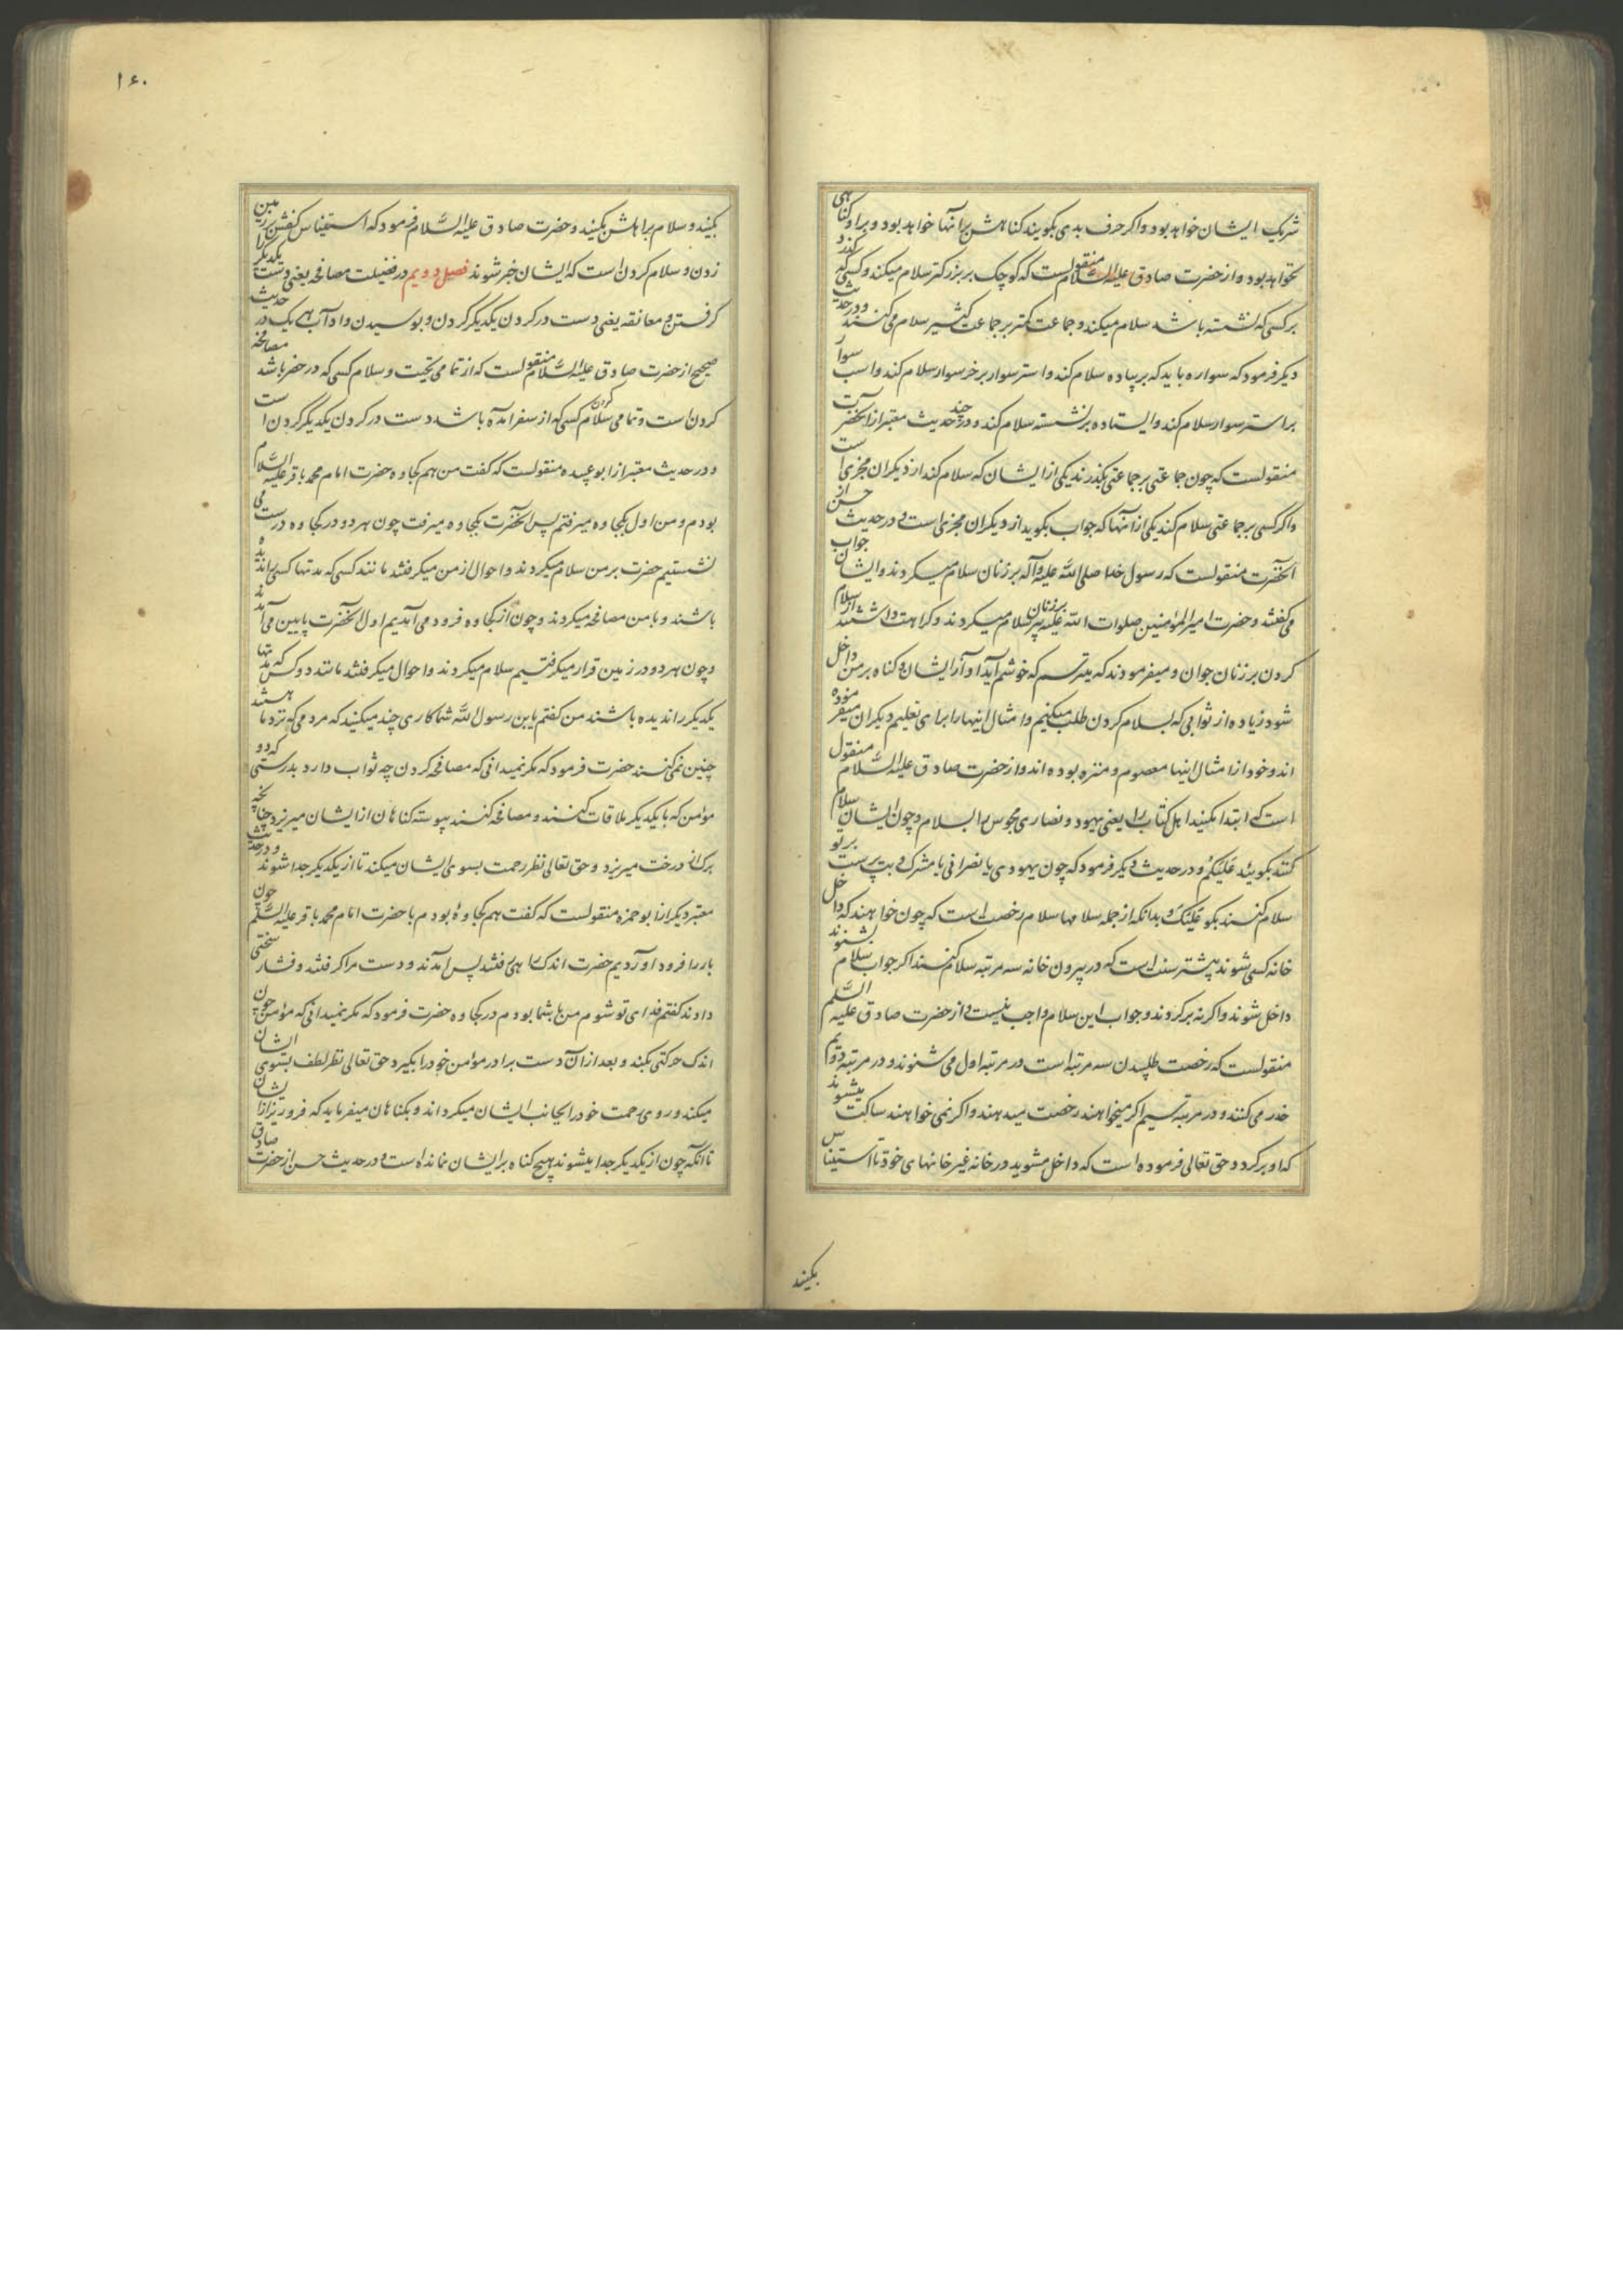 شریک ایشان خواهد بود و اکر حرف بدی بکویند کناهش بر انها خواهد بود و بر او کناهی
نخواهد بود و از حضرت صادق علیه السلام منقولست که کوچک بر بزرکتر سلام میکند و کسی که کذرد
بر کسی که نشسته باشد سلام میکند و جماعت کمتر بر جماعت کثیر سلام می کنند و در حدیث
دیکر فرمود که سواره باید که بر پیاده سلام کند و استر سوار بر خر سوار سلام کند و اسب سوار
بر استر سوار سلام کند و ایستاده بر نشسته سلام کند و در چند حدیث معتبر از انحضرت
منقولست که چون جماعتی بر جماعتی بکذرند یکی از ایشان که سلام کند از دیکران مجزی است
و اکر کسی بر جماعتی سلام کند یکی از انها که جواب بکوید از دیکران مجزی است و در حدیث حسن از
انحضرت منقولست که رسول خدا صلی الله علیه و آله بر زنان سلام میکردند و ایشان جواب
می کفتند و حضرت امیر المؤمنین صلوات الله علیه بر زنان پیر سلام میکردند و کراهت داشتند از سلام
کردن بر زنان جوان و میفرمودند که میترسم که خوشم آید آواز ایشان و کناه بر من داخل
شود زیاده از ثوابی که بسلام کردن طلب میکنیم و امثال اینها را برای تعلیم دیکران میفرموده
اند و خود از امثال اینها معصوم و منزه بوده اند و از حضرت صادق علیه السلام منقول
است که ابتدا مکنید اهل کتاب را یعنی یهود و نصاری و مجوس را بسلام و چون ایشان سلام
کنند بکویید علیکم و در حدیث دیکر فرمود که چون یهودی یا نصرانی یا مشرک و بت پرست بر تو
سلام کنند بکو علیک و بدانکه از جمله سلامها سلام رخصت است که چون خواهند که داخل
خانه کسی شوند پیشتر سنت است که در بیرون خانه سه مرتبه سلام کنند اکر جواب سلام بشنوند
داخل شوند و اکر نه برکردند و جواب این سلام واجب نیست و از حضرت صادق علیه السلم
منقولست که رخصت طلبیدن سه مرتبه است در مرتبه اول می شنوند و در مرتبه دویم
حذر می کنند و در مرتبه سیم اکر میخواهند رخصت میدهند و اکر نمی خواهند ساکت میشوند
که او برکردد و حق تعالی فرموده است که داخل مشوید در خانه غیر خانهای خود تا استیناس
بکنید
۱۶۰
بکنید و سلام بر اهلش بکنید و حضرت صادق علیه السلام فرمود که استیناس کفش بر زمین
زدن و سلام کردن است که ایشان خبر شوند فصل دویم در فضیلت مصافحه یعنی دست یکدیکر را
کرفتن و معانقه یعنی دست در کردن یکدیکر کردن و بوسیدن و آداب هر یک در حدیث
صحیح از حضرت صادق علیه السلام منقولست که از تمامی تحیت و سلام کسی که در حضر باشد مصافحه
کردن است و تمامی سلام کردن کسی که از سفر امده باشد دست در کردن یکدیکر کردن است
و در حدیث معتبر از ابو عبیده منقولست که کفت من هم کجاوه حضرت امام محمد باقر علیه السلام
بودم و من اول بکجاوه میرفتم پس انحضرت بکجاوه میرفت چون هر دو در کجاوه درست می
نشستیم حضرت بر من سلام میکردند و احوال از من میکرفتند مانند کسی که مدتها کسی را ندیده
باشند و با من مصافحه میکردند و چون از کجاوه فرود می آمدیم اول انحضرت پایین می آمدند
و چون هر دو در زمین قرار میکرفتیم سلام میکردند و احوال میکرفتند مانند دو کس که مدتها
یکدیکر را ندیده باشند من کفتم یا بن رسول الله شما کاری چند میکنید که مردمی که نزد ما هستند
چنین نمی کنند حضرت فرمود که مکر نمیدانی که مصافحه کردن چه ثواب دارد بدرستی که دو
مؤمن که با یکدیکر ملاقات کنند و مصافحه کنند پیوسته کناهان از ایشان میریزد چنانچه
برک از درخت میریزد و حق تعالی نظر رحمت بسوی ایشان میکند تا از یکدیکر جدا شوند و در حدیث
معتبر دیکر از ابو حمزه منقولست که کفت هم کجاوه بودم با حضرت امام محمد باقر علیه السلم چون
بار را فرود اوردیم حضرت اندک راهی رفتند پس امدند و دست مرا کرفتند و فشار سختی
دادند کفتم فدای تو شوم من با شما بودم در کجاوه حضرت فرمود که مکر نمیدانی که مؤمن چون
اندک حرکتی بکند و بعد از آن دست برادر مؤمن خود را بکیرد حق تعالی نظر لطف بسوی ایشان
میکند و روی رحمت خود را بجانب ایشان میکرداند و بکناهان میفرماید که فرو ریز از ایشان
تا انکه چون از یکدیکر جدا میشوند هیچ کناه بر ایشان نمانده است و در حدیث حسن از حضرت صادق